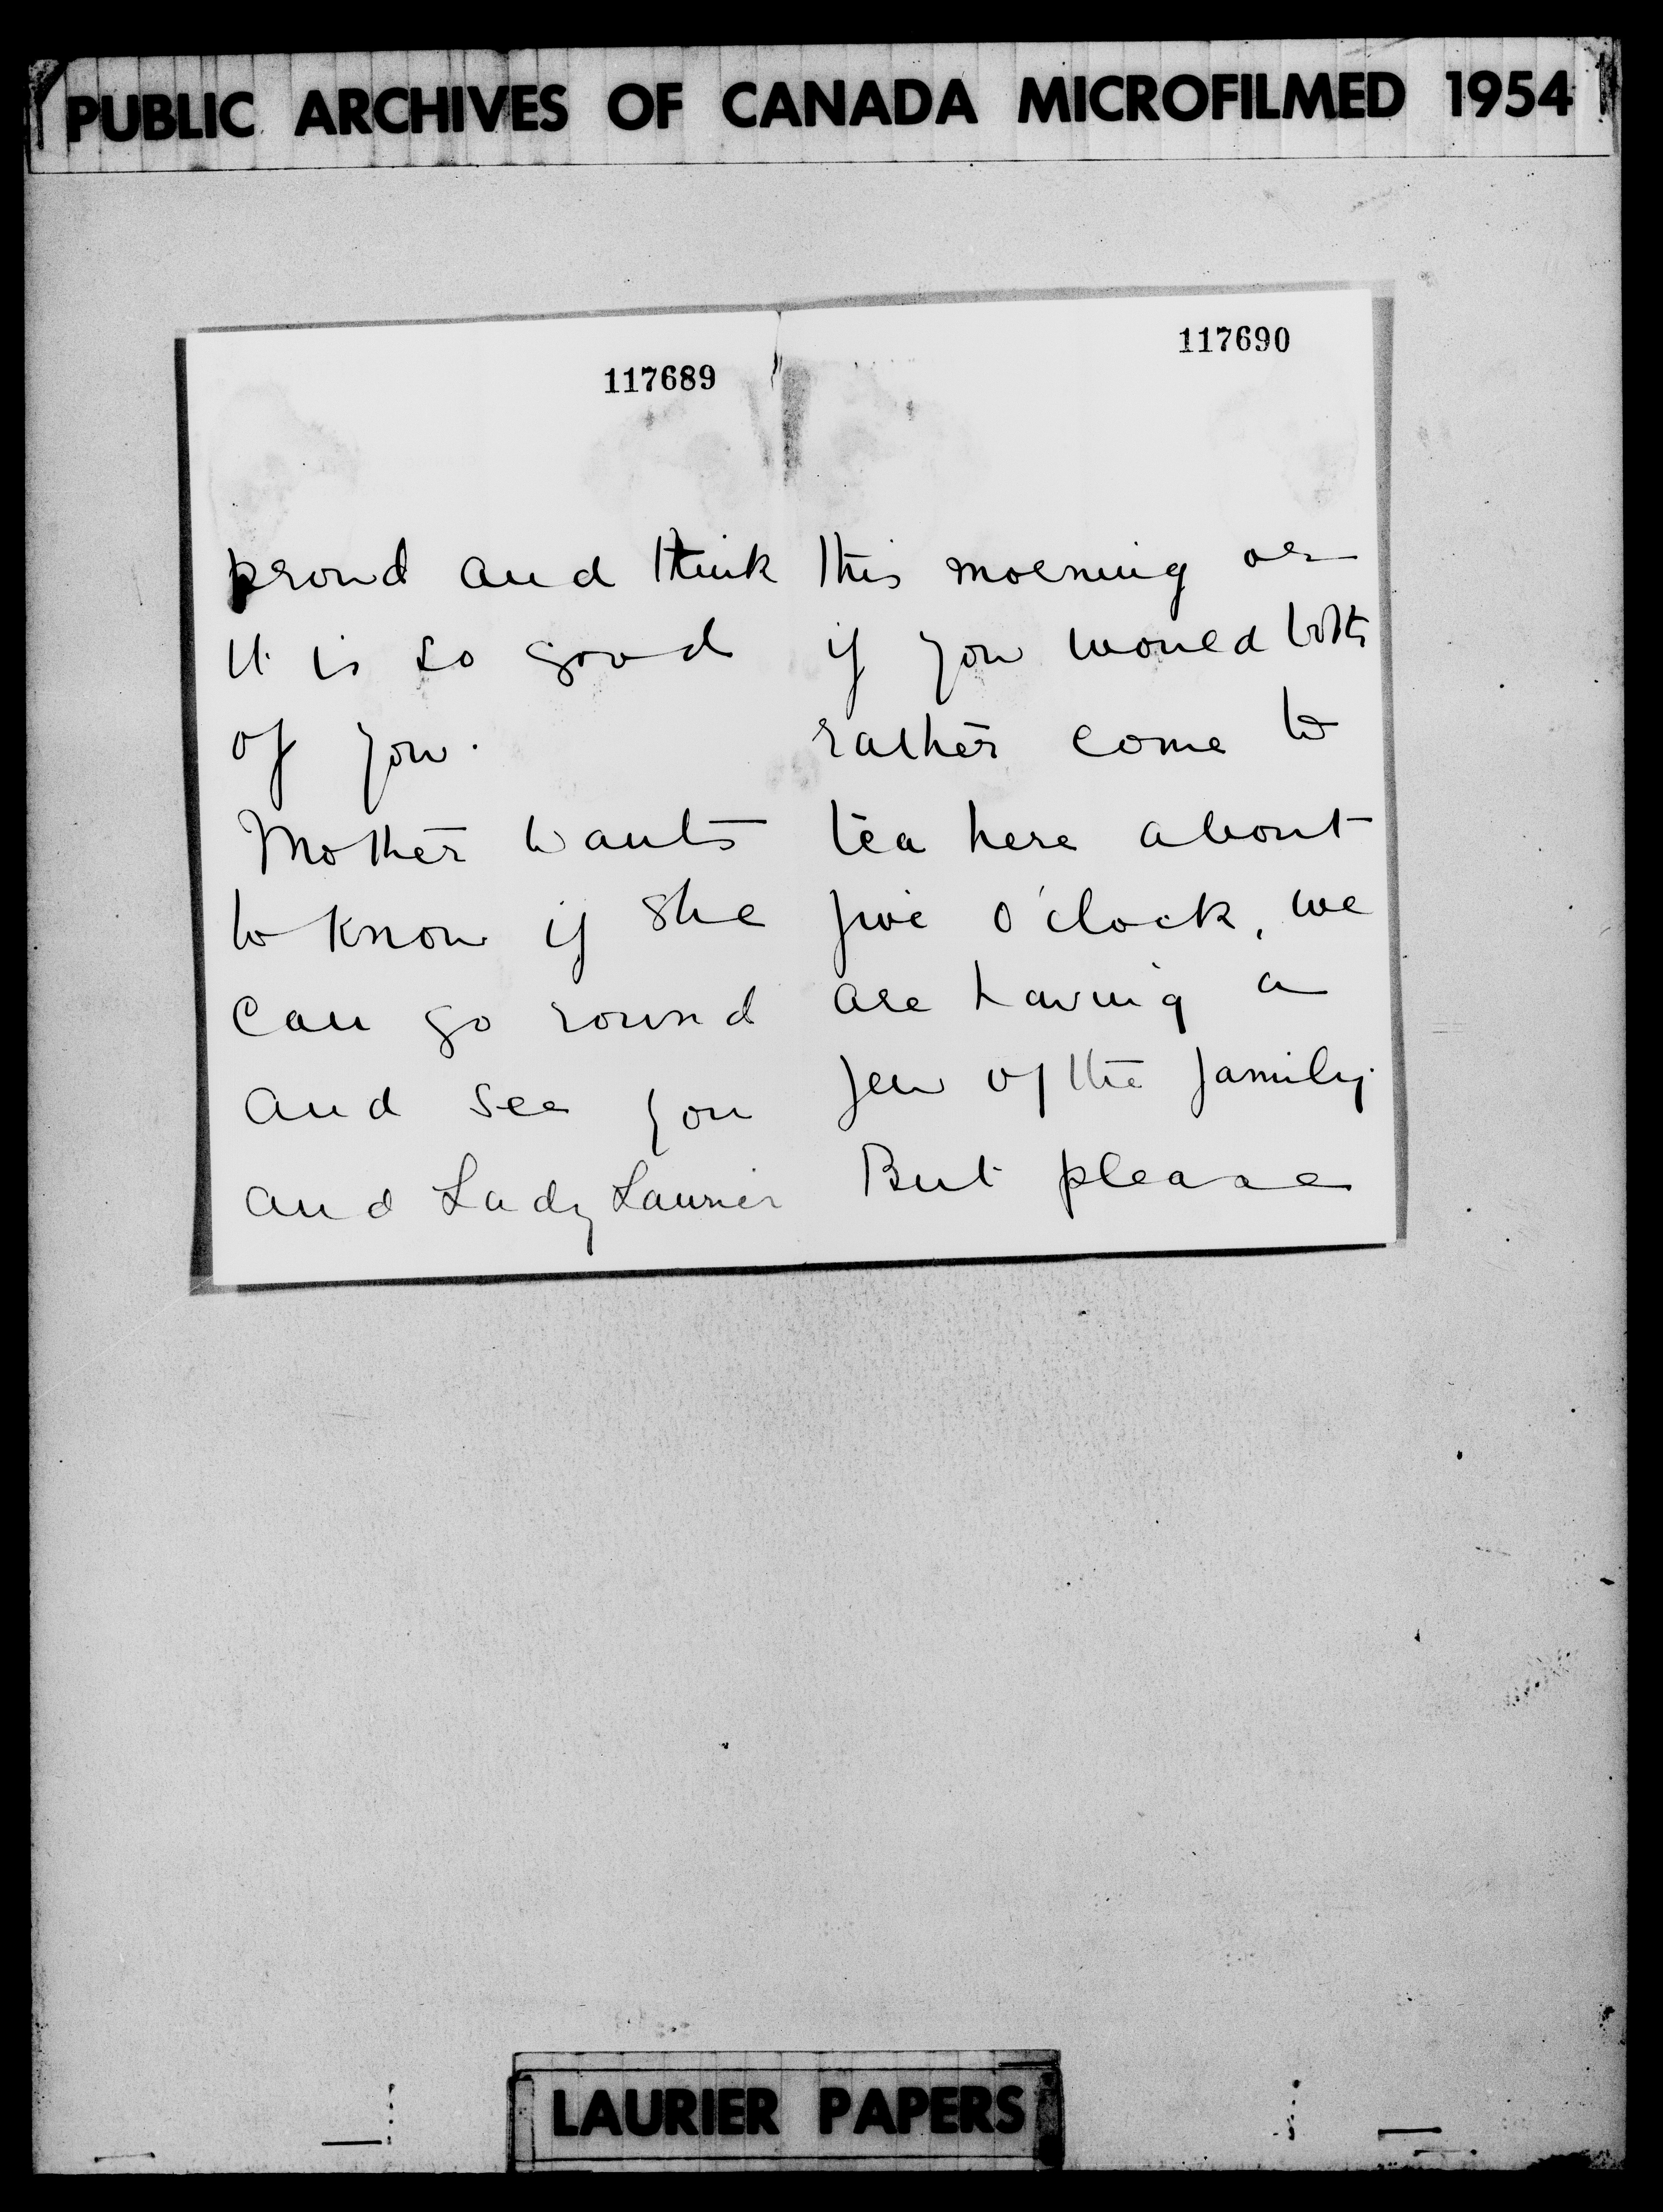 PUBLIC ARCHIVES OF CANADA MICROFILMED 1954
117689
proud and think
it is so good
of you.
Mother wants
to know if she
can go round
and see you
and Lady Laurier
117690
this morning or
if you would both
rather come to
tea here about
five o'clock, we
are having a
few of the family.
But please
LAURIER PAPERS